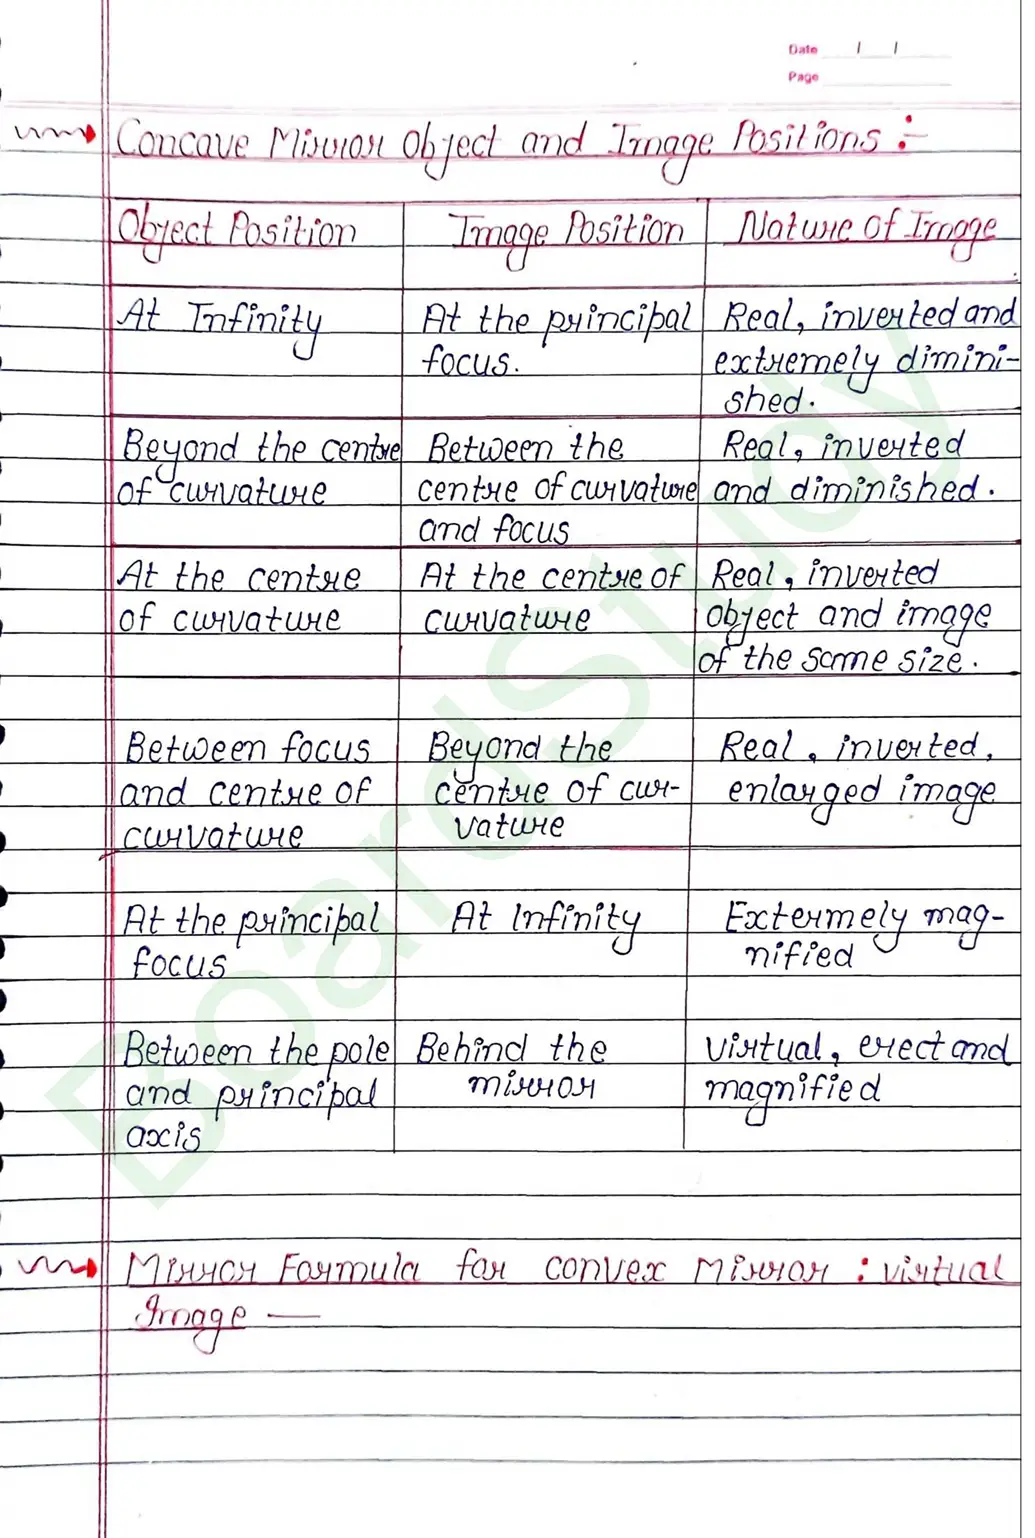 Date / /
Page
Concave Mirror Object and Image Positions :-
Object Position
Image Position
Nature of Image
At Infinity
At the principal
focus.
Real, inverted and
extremely dimini-
shed.
Beyond the centre
of curvature
Between the
centre of curvature
and focus
Real, inverted
and diminished.
At the centre
of curvature
At the centre of
curvature
Real, inverted
object and image
of the same size.
Between focus
and centre of
curvature
Beyond the
centre of cur-
vature
Real, inverted,
enlarged image
At the principal
focus
At Infinity
Extermely mag-
nified
Between the pole
and principal
axis
Behind the
mirror
virtual, erect and
magnified
Mirror Formula for convex Mirror : virtual
Image —
BoardStudy